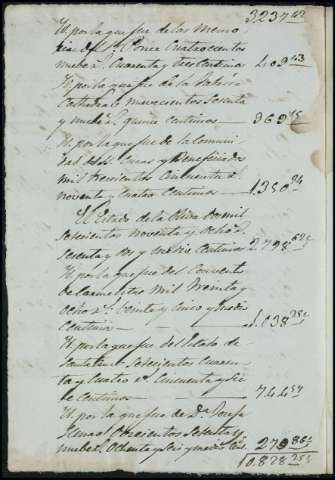 3237,42
Yt. por la que fue de las Memo
rias de Sn. Ponce Cuatrocientos
nueve rs. Cuarenta y tres Centimos 409,43
Yt. por la que fue de la
Catedral novecientos Sesenta
y nueve rs. quince Centimos 969,15
Yt. por la que fue de la Comuni
dad de Sres. Curas y Beneficiados
mil trescientos Cincuenta rs.
noventa y cuatro Centimos 1350,94
El Estado de la Oliva dos mil
Setecientos noventa y ocho rs.
Sesenta y dos y medio Centimos 2798,62 5
Yt. por la que fue del Convento
de Carmelitas Mil treinta y
ocho rs. veinte y cinco y medio
Centimos 1.038,25 5
Yt. por la que fue del Estado de
Setecientos Cuaren
ta y Cuatro rs. Cincuenta y
Centimos 744
Yt. por la que fue de Da. Josefa
Doscientos Setenta y
nueve rs. Ochenta y seis y medio 279,86 5
10.828